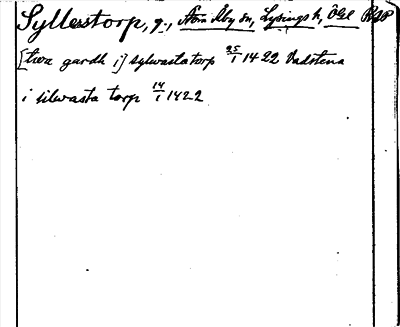 Syllerstorp, g., Åby sn, Lysings h, Ögl
[twa gardh i] sylwastatorp 25/1 1422 Vadstena
i silwasta torp 14/1 1422